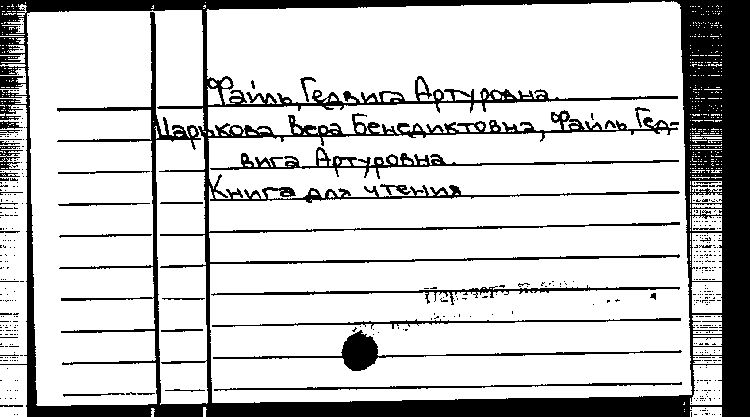 Файль, Гедвига Артуровна.
Царькова, Вера Бенедиктовна, Файль, Гед-
вига Артуровна.
Книга для чтения